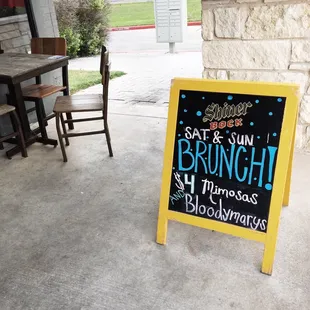 Shiner
BOCK
SAT & SUN
BRUNCH!
$4 Mimosas
AND Bloodymarys